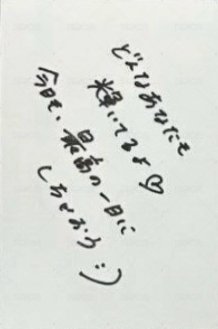 どんなあなたも
輝いてるよ♡
今日も、最高の一日に
しちゃおう:)